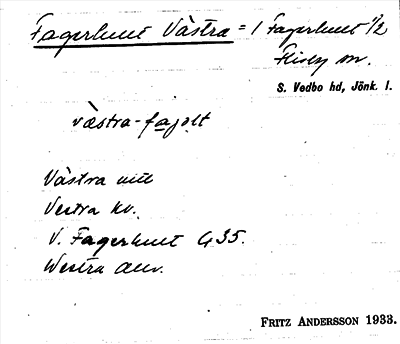 Fagerhult Västra = 1 Fagerhult 1/2
Flisby sn.
S. Vedbo hd, Jönk. l.
västra-fajəlt
Västra utt
Vestra kv.
V. Fagerhult G 35.
Westra
FRITZ ANDERSSON 1933.